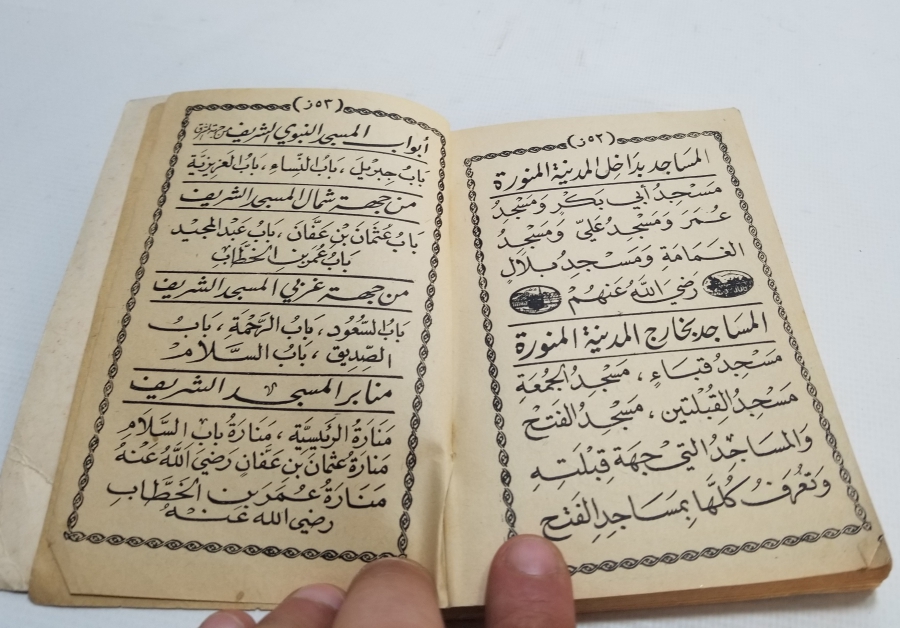 (٥٢ز)
المساجد بداخل المدينة المنورة
مَسْجِدُ أبي بَكْرٍ وَمَسْجِدُ
عُمَرَ وَمَسْجِدُ عَلِيٍّ وَمَسْجِدُ
الغَمَامَةِ وَمَسْجِدُ بِلَالٍ
رَضِيَ اللهُ عَنْهُم
المساجد بخارج المدينة المنورة
مَسْجِدُ قُبَاءٍ، مَسْجِدُ الجُمُعَةِ
مَسْجِدُ القِبْلَتين، مَسْجِدُ الفَتْحِ
وَالمسَاجِدُ التي جِهَةِ قِبْلَتِهِ
وَتُعْرَفُ كُلُّهَا بِمَسَاجِدِ الفَتْحِ
(٥٣ز)
أبواب المسجد النبوي الشريف من جهة الشرق
بَابُ جِبريلَ، بَابُ النِّساءِ، بَابُ العَزِيزِيَّة
من جهة شمال المسجد الشريف
بَابُ عُثْمَانَ بْنِ عَفَّانَ، بَابُ عَبْدِ المجيد
بَابُ عُمَرَ بنِ الخَطَّابِ
من جهة غربي المسجد الشريف
بَابُ السُّعُود، بَابُ الرَّحْمَة، بَابُ
الصِّدِّيق، بَابُ السَّلَام
منابر المسجد الشريف
مَنَارَةُ الرَّئِيسِيَّة، مَنَارَةُ بابِ السَّلَام
مَنَارَةُ عُثْمَانَ بن عَفَّانٍ رَضِيَ اللهُ عَنْهُ
مَنَارَةُ عُمَرَ بن الخَطَّابِ
رضى الله عَنْهُ